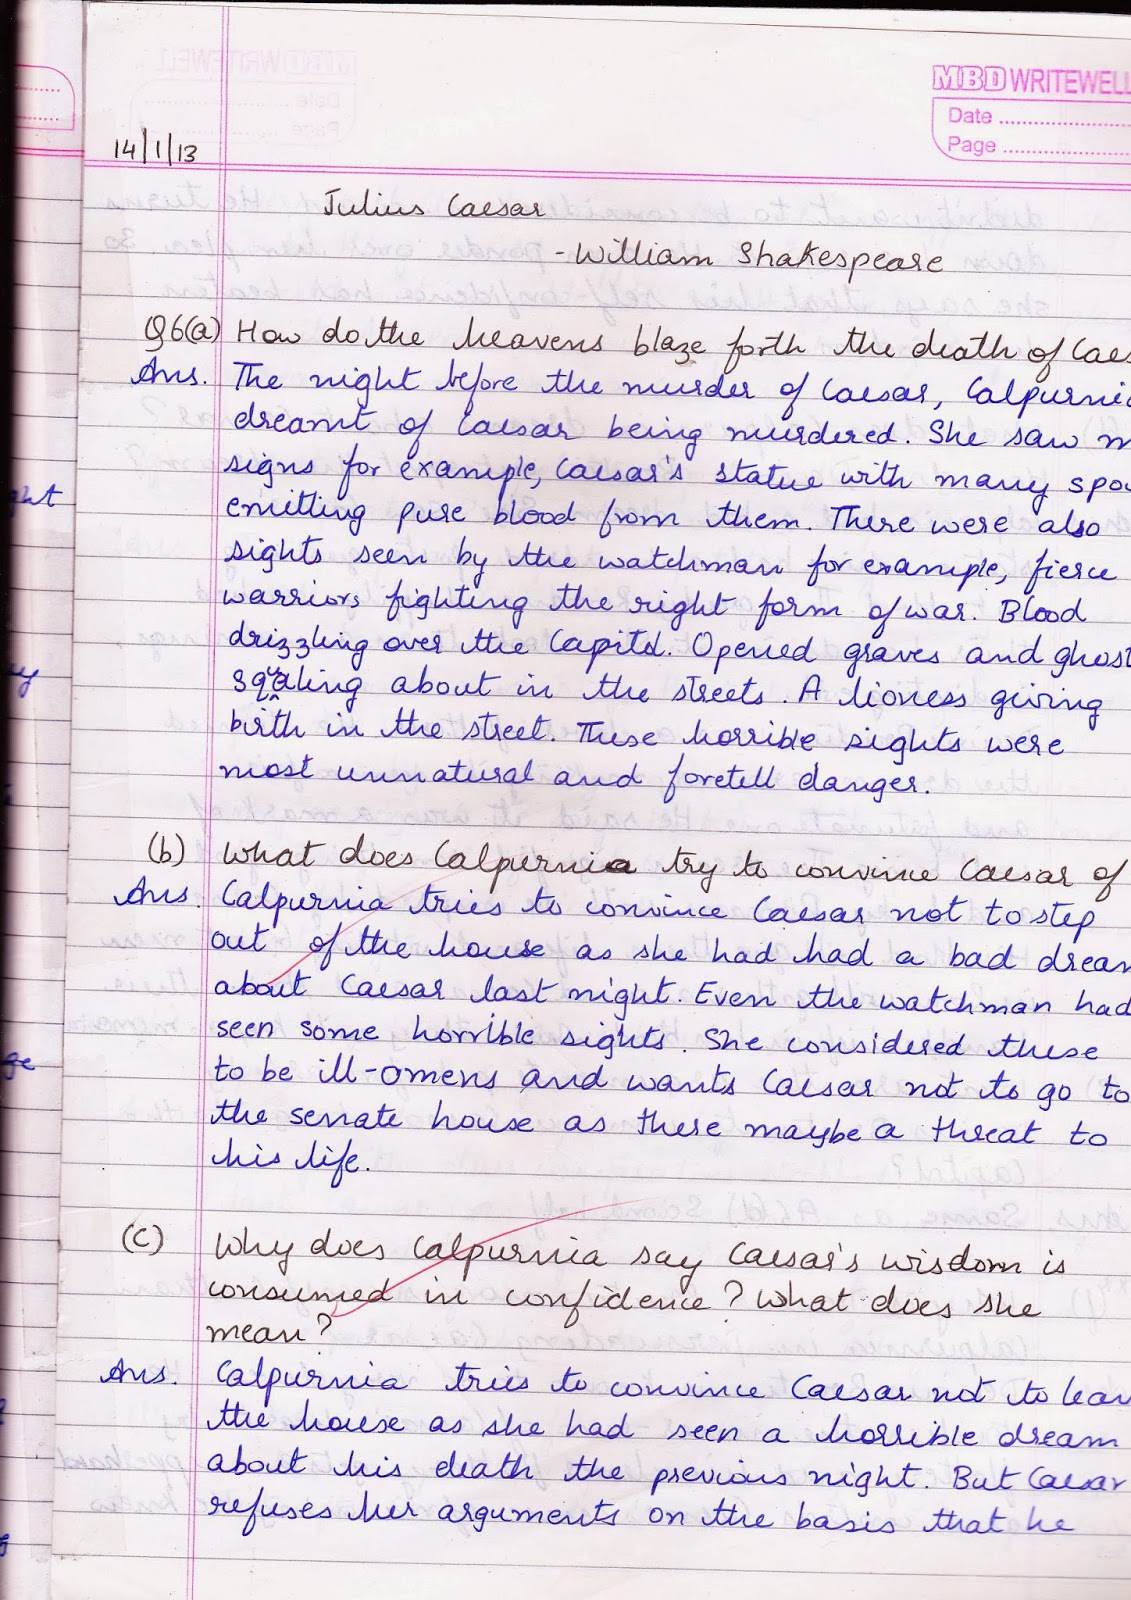 MBD WRITEWELL
Date
Page
14/1/13
Julius Caesar
- William Shakespeare
Q6(a) How do the heavens blaze forth the death of Caes
Ans. The night before the murder of Caesar, Calpurnia
dreamt of Caesar being murdered. She saw m
signs for example, Caesar's statue with many spou
emitting pure blood from them. There were also
sights seen by the watchman for example, fierce
warriors fighting the right form of war. Blood
drizzling over the Capitol. Opened graves and ghost
squealing about in the streets. A lioness giving
birth in the street. These horrible sights were
most unnatural and foretell danger.
(b) What does Calpurnia try to convince Caesar of
Ans. Calpurnia tries to convince Caesar not to step
out of the house as she had had a bad dream
about Caesar last night. Even the watchman had
seen some horrible sights. She considered these
to be ill-omens and wants Caesar not to go to
the senate house as there maybe a threat to
his life.
(c) Why does Calpurnia say Caesar's wisdom is
consumed in confidence? What does she
mean?
Ans. Calpurnia tries to convince Caesar not to leav
the house as she had seen a horrible dream
about his death the previous night. But Caesar
refuses her arguments on the basis that he